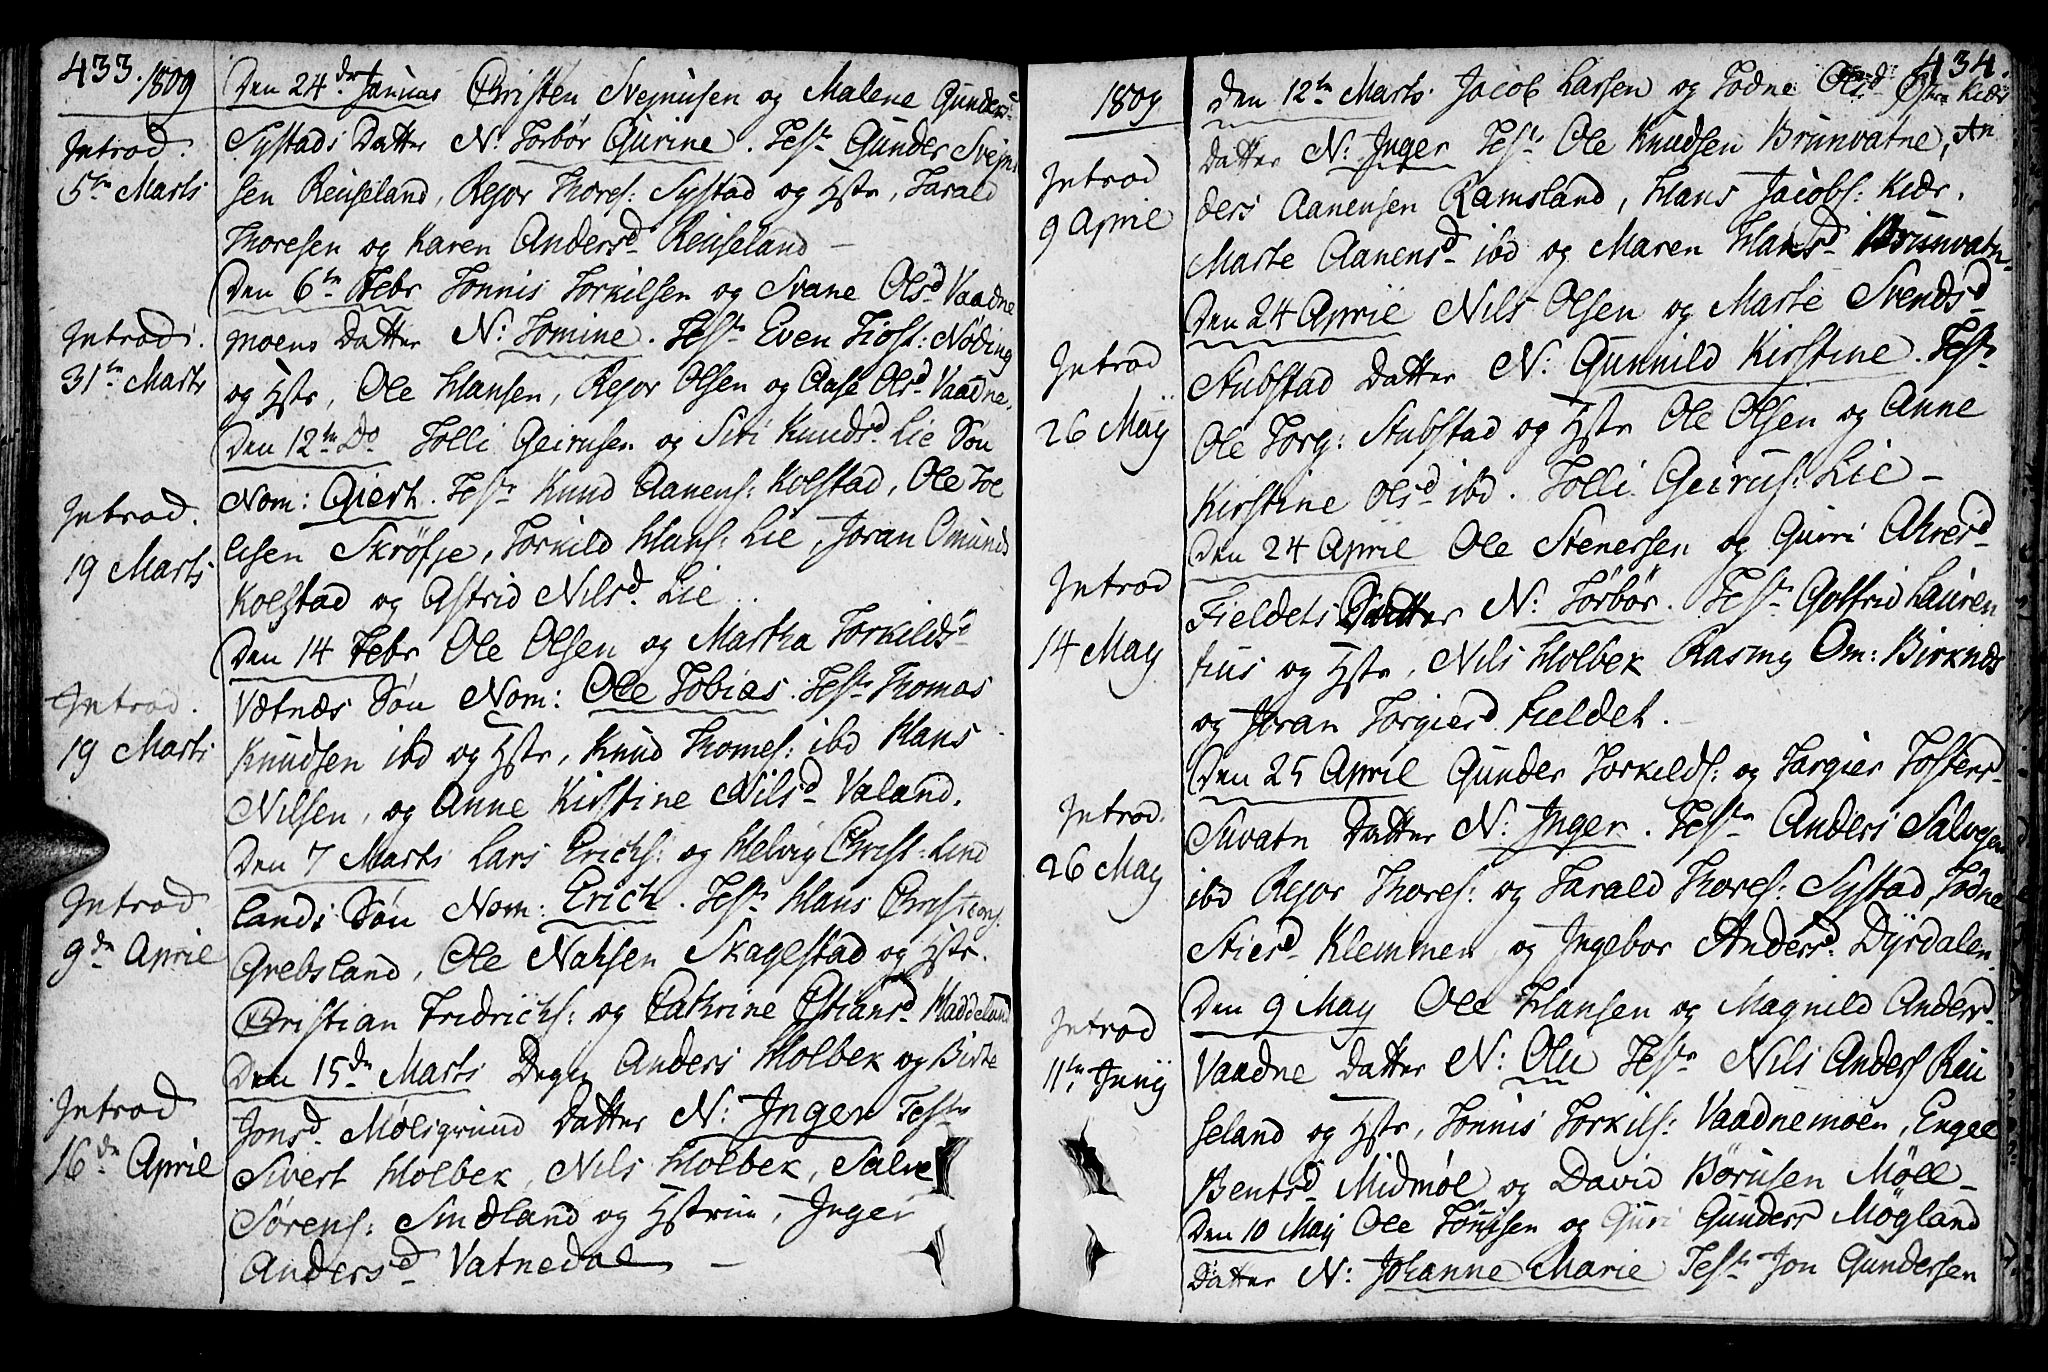 433. 1809
Introd:
5te Marts
Den 24de Januar Christen Svejnusen og Malene Gundersd
Systads Datter N: Torbør Gurine. Test: Gunder Svejnu
sen Reuseland, Rejor Thores: Systad og Hstr, Tarald
Thoresen og Karen Andersd Reuseland —
Introd:
31te Marts
Den 6te Febr Tønnis Torkilsen og Svane Olsd Vaadne
moens Datter N: Tomine. Test: Even Tiøst: Nøding
og Hstr, Ole Hansen, Rejor Olsen og Aase Olsd Vaadne.
Introd.
19 Marts
Den 12te Do Tolli Geirusen og Siri Knudsd Lie Søn
Nom: Giert. Test: Knud Aanens: Kolstad, Ole Tol
lisen Skrøfje, Torkild Hans: Lie, Joran Omunds
Kolstad og Astrid Nilsd Lie ..
Introd.
19 Marts
Den 14 Febr Ole Olsen og Martha Torkildsd
Vætnæs Søn Nom: Ole Tobias. Test: Thomas
Knudsen ibd og Hstr, Knud Thomes: ibd Hans
Nilsen, og Anne Kirstine Nilsd Valand.
Introd
9de April
Den 7 Marts Lars Erichs: og Helvig Christ: Lind
lands Søn Nom: Erich. Test: Hans Christians:
Grebsland, Ole Nahsen Skagestad og Hstr.
Christian Fridrichs: og Cathrine Cstiansd Haddeland
Introd
16de April
Den 15de Marts Degn Anders Holbek og Birte
Jonsd Mølsgrund Datter N: Inger Test:
Sivert Holbek, Nils Holbek, Salve
Sørens: Sindland og Hstrue, Inger
Andersd Vatnedal —
434.
1809
Introd
9 April
Den 12te Marts Jacob Lassen og Todne Olsd Øfre Kiær
Datter N: Inger Test: Ole Knudsen Brunvatne, An
ders Aanensen Ramsland, Hans Jacobs: Kiær.
Marte Aanensd ibd og Maren Hansd Brunvatn
Introd
26 Maÿ
Den 24 April Nils Olsen og Marte Svendsd
Stubstad Datter N: Gunnild Kirstine. Test:
Ole Torg: Stubstad og Hstr Ole Olsen og Anne
Kirstine Olsd ibd. Tolli Geirus: Lie —
Introd
14 May
Den 24 April Ole Stenersen og Gurri Ahresd
Fieldets Datter N: Torbør. Test: Gotfrid Lauren
tius og Hstr, Nils Holbek Rasmg Om: Birknæs
og Joran Torgiersd Fieldet.
Introd.
26 May
Den 25 April Gunder Torkilds: og Targier Tostensd
Suvatn Datter N: Inger. Test: Anders Salvesen
ibd Rejor Thores: og Tarald Thores: Systad, Todne
Stiersd Klemmen og Ingebor Andersd Dyrdalen
Introd
11te Junij
Den 9 May Ole Hansen og Magnild Andersd
Vaadne Datter N: Olu Test: Nils Anders Reu
seland og Hstr, Tønnis Torkils: Vaadnemoen, Engel
Bentsd Midmøl og David Børusen Møll —
Den 10 Maÿ Ole Tønnisen og Guri Gundersd Møgland
Datter N: Johanne Marie Test: Jon Gundersen